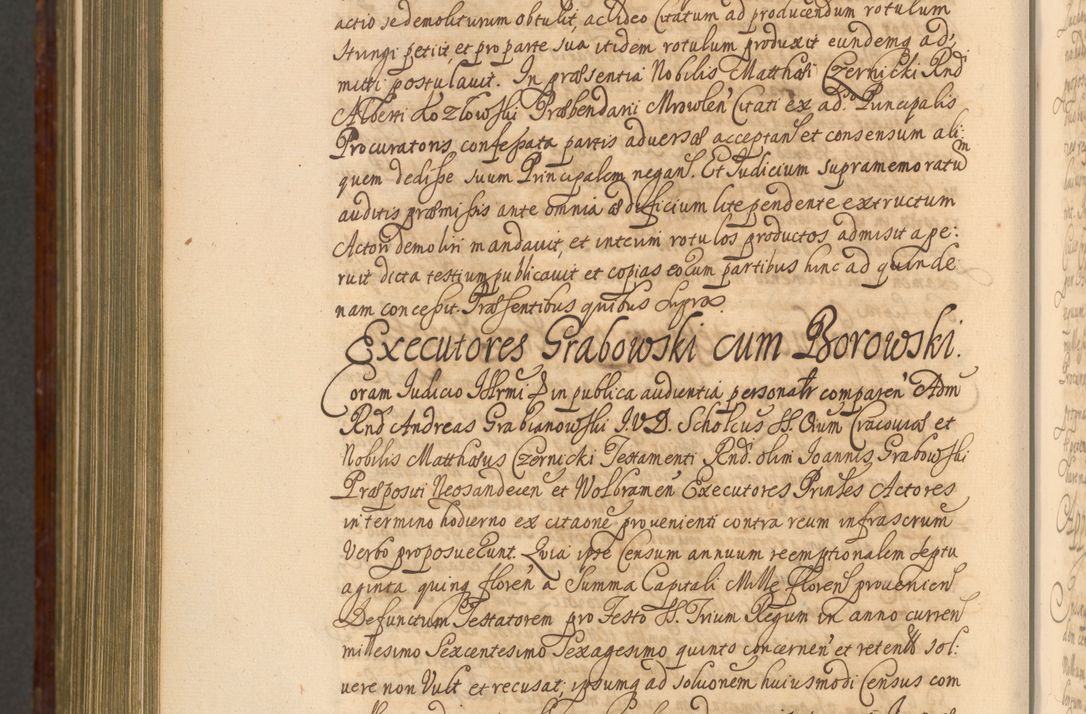 actio se demoliturum obtulit, ac Ideo Citatum ad producendum rotulum
stringi petiit, et pro parte sua itidem rotulum produxit eundemq ad,
mitti postulavit. In præsentia Nobilis Matthæi Czernicki Rndi
Alberti Kozłowski Præbendarii Mrowlen Citati ex ad. Principalis
Procuratoris confessata partis adversæ acceptan et consensum ali:
quem dedisse suum Principalem negan. Et Iudicium supramemoratum
auditis præmissis ante omnia ædificium lite pendente extructum
Actori demoliri mandavit, et interim rotulos productos admisit ape:
ruit dicta testium publicavit et copias eorum partibus hinc ad quinde
nam concessit. Præsentibus quibus supra
Executores Grabowski cum Borowski.
Coram Iudicio Illrmi in publica audientia personalr comparen Adm
Rnd Andreas Grabianowski I.V.D. Scholcus SS. Oium Cracovias et
Nobilis Matthæus Czernicki Testamenti Rnd. olim Ioannis Grabowski
Præpositi Neosandecen et Wolbramen Executores Prinles Actores
in termino hodierno ex citaone provenienti contra reum infrascrum
Verbo proposuerunt. Quia ipse Censum annuum reemptionalem septu
aginta quinq floren a Summa Capitali Mille floren provenien
Defunctum Testatorem pro Festo SS. Trium Regum in anno curren
millesimo Sexcentesimo Sexagesimo quinto concernen et reten sol:
vere non Vult et recusat, ipsumq ad soluonem huiusmodi Census com